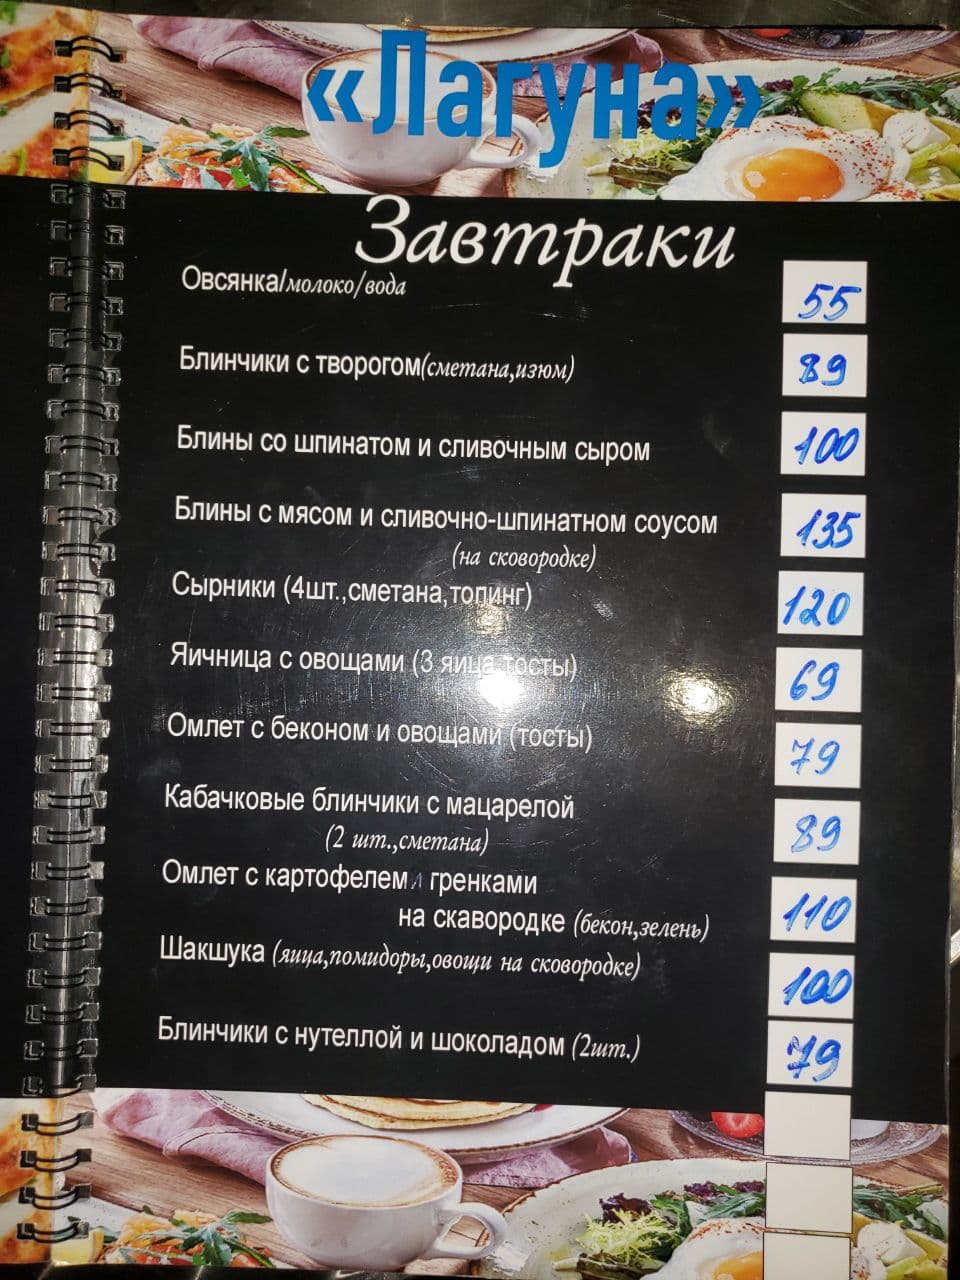 «Лагуна»
Завтраки
Овсянка/молоко/вода 55
Блинчики с творогом(сметана,изюм) 89
Блины со шпинатом и сливочным сыром 100
Блины с мясом и сливочно-шпинатном соусом 135
(на сковородке)
Сырники (4шт.,сметана,топинг) 120
Яичница с овощами (3 яица,тосты) 69
Омлет с беконом и овощами (тосты) 79
Кабачковые блинчики с мацарелой 89
(2 шт.,сметана)
Омлет с картофелем и гренками
на скавородке (бекон,зелень) 110
Шакшука (яица,помидоры,овощи на сковородке) 100
Блинчики с нутеллой и шоколадом (2шт.) 79